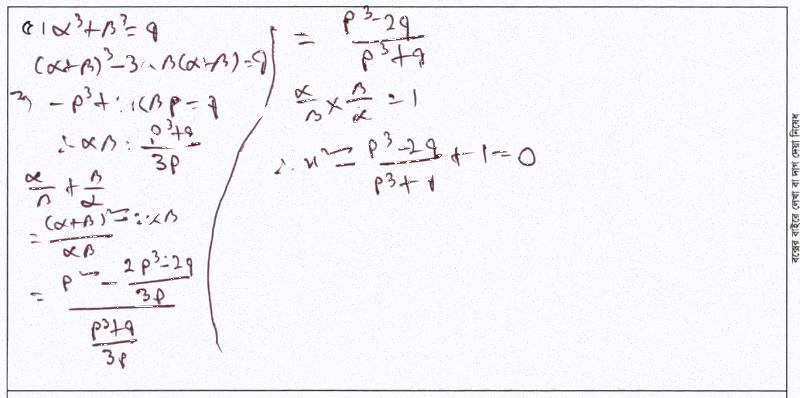 α³+β³=q
(α+β)³-3αβ(α+β)=q
⇒ -p³+3αβp=q
∴ αβ = (p³+q)/3p
α/β + β/α
= ((α+β)²-2αβ)/αβ
= (p² - (2p³-2q)/3p)/((p³+q)/3p)
= (p³-2q)/(p³+q)
α/β × β/α = 1
∴ x² - (p³-2q)/(p³+q) + 1 = 0
বক্সের বাইরে লেখা বা দাগ দেয়া নিষেধ